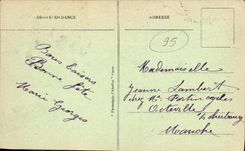 CORRESPONDANCE
ADRESSE
95
Bons baisers
Bonne fête
Marie Georges
Mademoiselle
Jeanne Lambert
chez Mr Fortin cycles
Octeville
s/ cherbourg
Manche